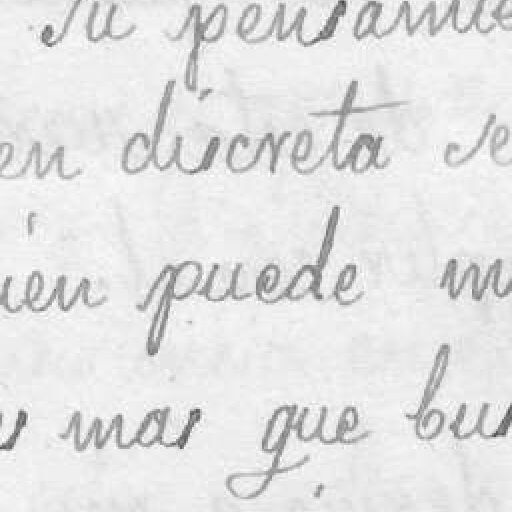 su pensamie
en discreta se
ien puede m
s mas que bus